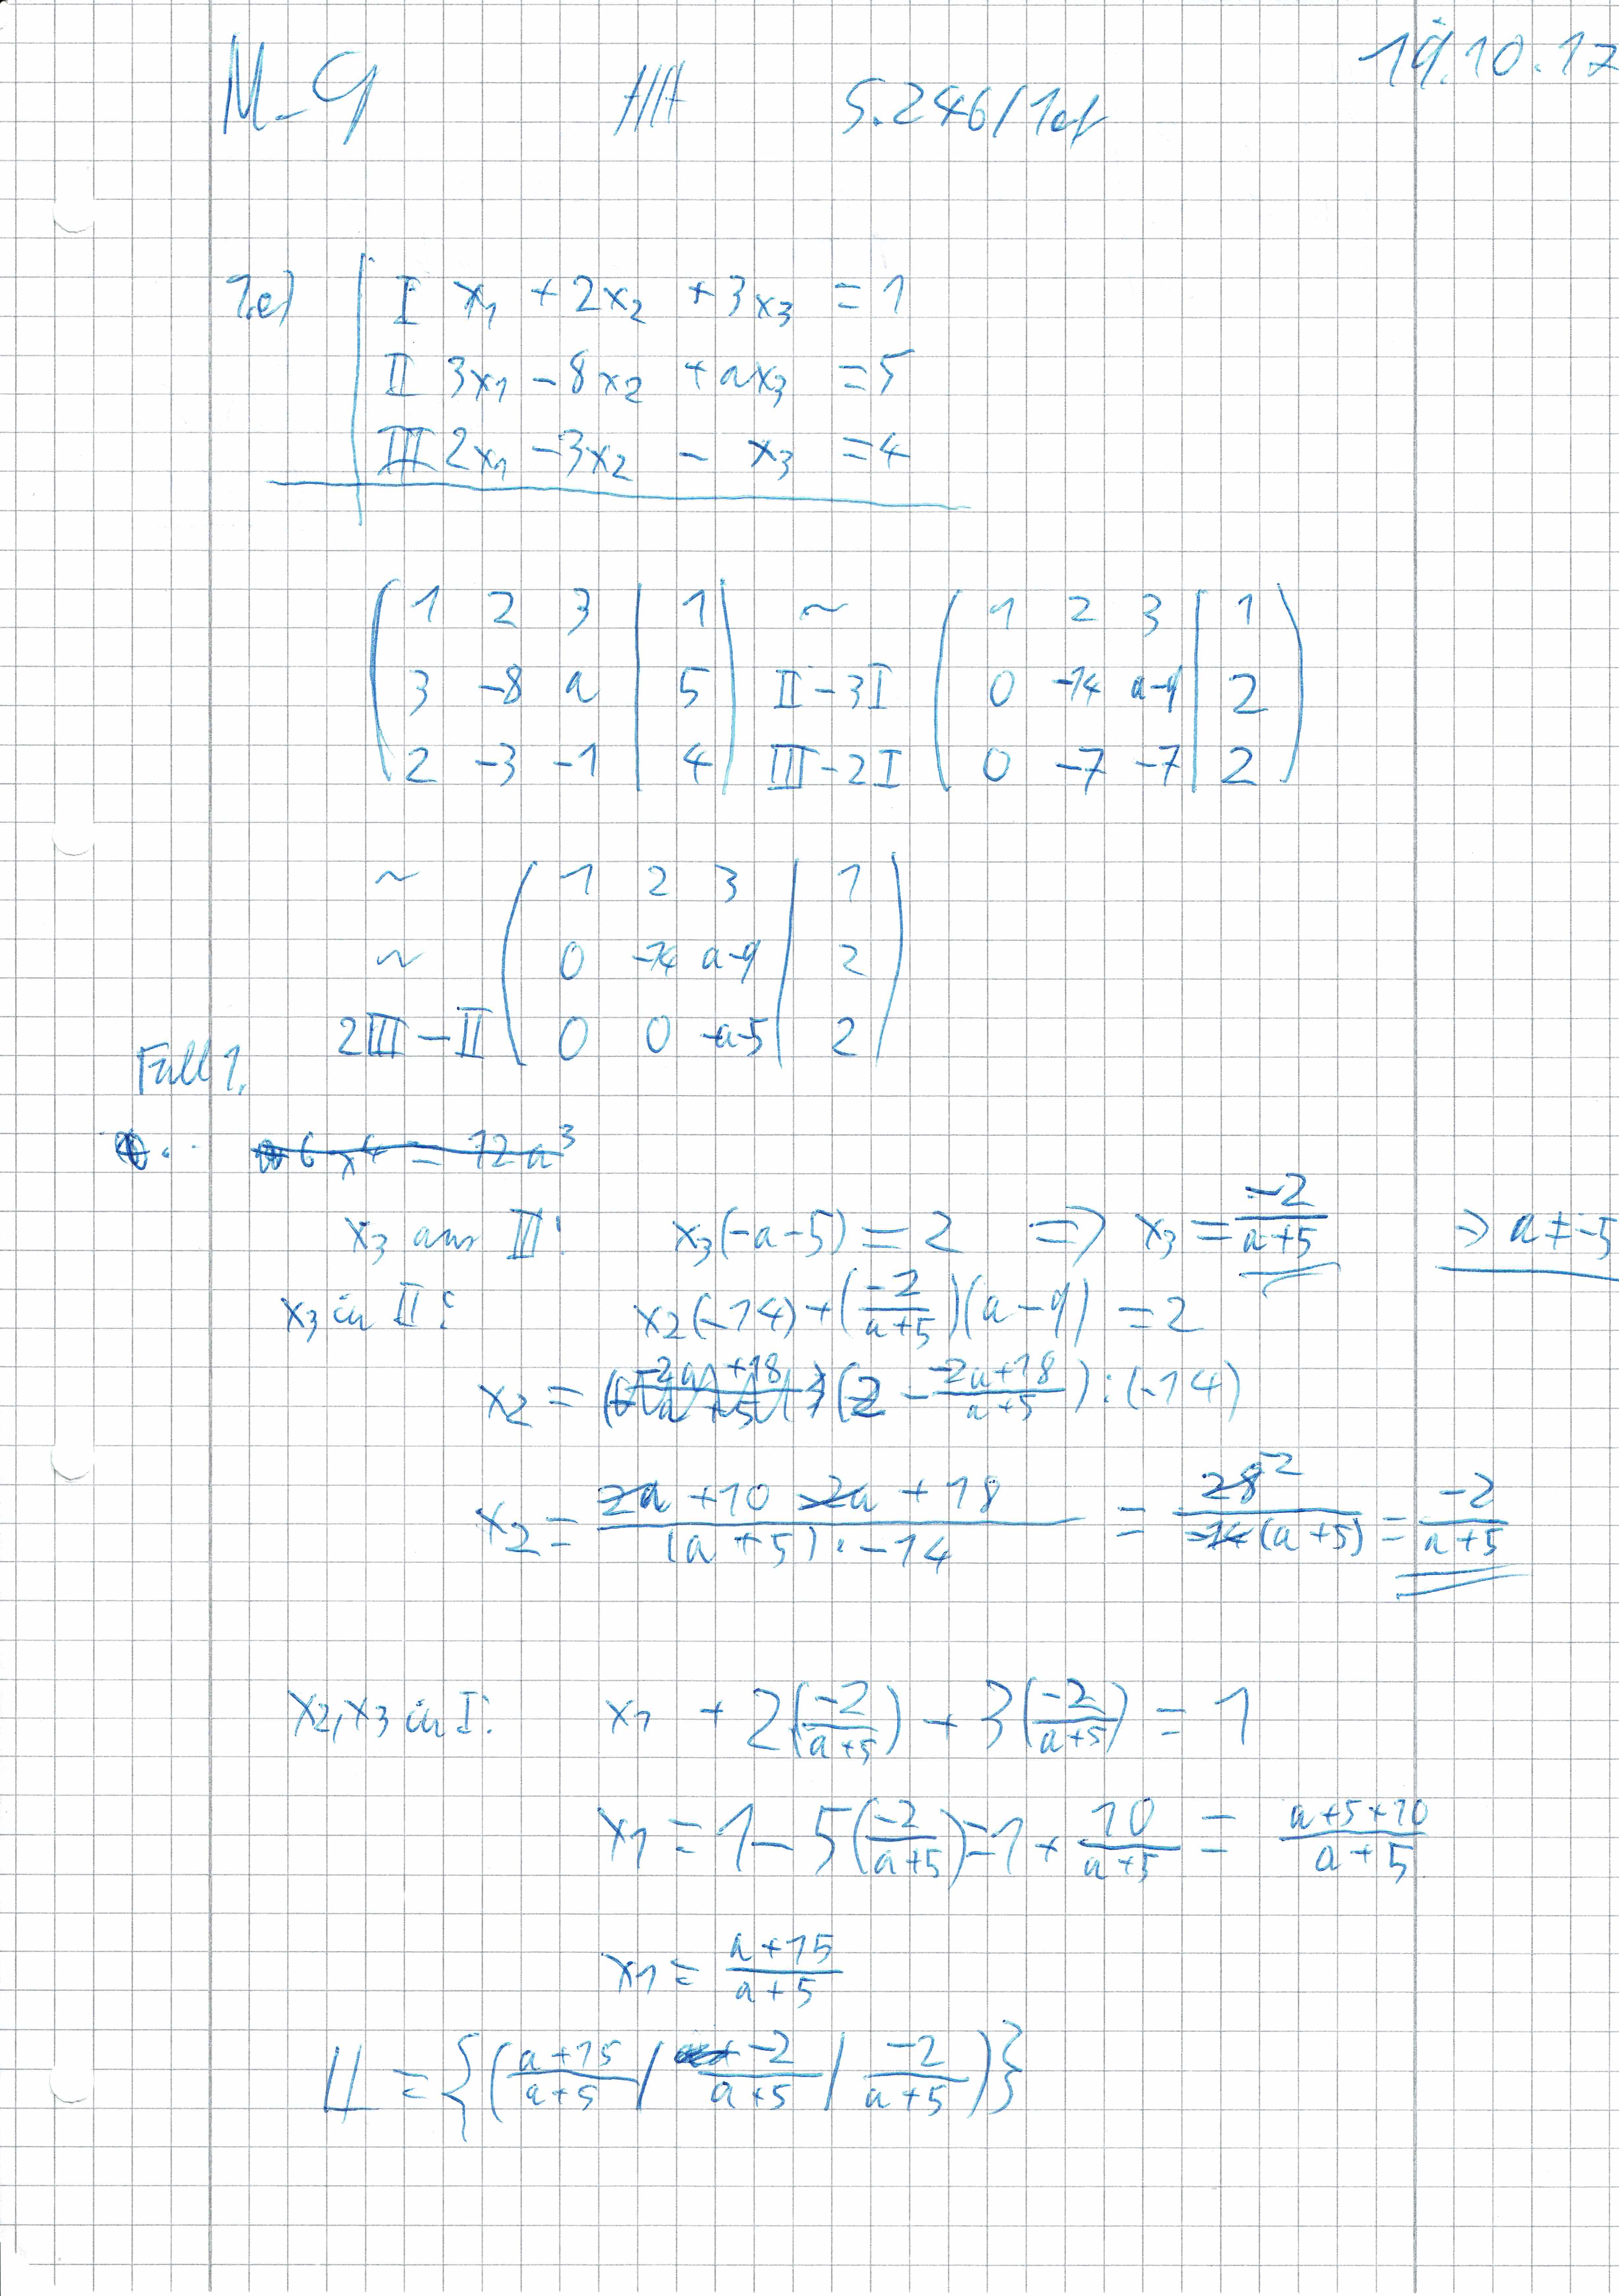 M-9 HA S.246/1ef 19.10.17
1.e) I x₁ + 2x₂ + 3x₃ = 1
II 3x₁ - 8x₂ + ax₃ = 5
III 2x₁ - 3x₂ - x₃ = 4
1 2 3 | 1 ~ 1 2 3 | 1
3 -8 a | 5 II - 3I 0 -14 a-9 | 2
2 -3 -1 | 4 III - 2I 0 -7 -7 | 2
~ 1 2 3 | 1
~ 0 -14 a-9 | 2
2III - II 0 0 -a-5 | 2
Fall 1.
6x⁴ = 12a³
x₃ aus III: x₃(-a-5) = 2 => x₃ = -2/(a+5) => a ≠ -5
x₃ in II: x₂(-14) + (-2/(a+5))(a-9) = 2
x₂ = (2 - (-2a+18)/(a+5)) : (-14)
x₂ = (2a + 10 - 2a + 18)/((a+5) · -14) = 28 -2/(-14(a+5)) = -2/(a+5)
x₂, x₃ in I: x₁ + 2(-2/(a+5)) + 3(-2/(a+5)) = 1
x₁ = 1 - 5(-2/(a+5)) = 1 + 10/(a+5) = (a+5+10)/(a+5)
x₁ = (a+15)/(a+5)
𝕃 = {((a+15)/(a+5) / -2/(a+5) / -2/(a+5))}